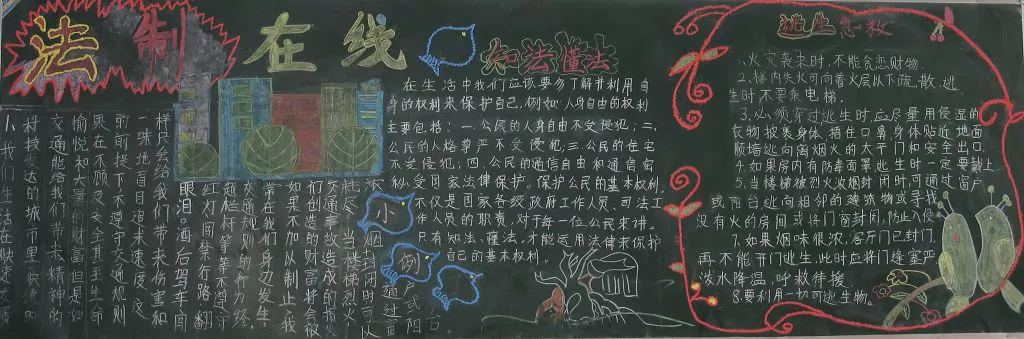 法制在线
知法懂法
在生活中我们应该要多了解并利用自
身的权利来保护自己,例如:人身自由的权利
主要包括:一.公民的人身自由不受侵犯;二.
公民的人格尊严不受侵犯;三.公民的住宅
不受侵犯;四.公民的通信自由和通信密
秘受国家法律保护。保护公民的基本权利,
不仅是国家各级政府工作人员、司法工
作人员的职责,对于每一位公民来讲,
只有知法、懂法,才能运用法律来保护
自己的基本权利。
逃生
1.火灾袭来时,不能贪恋财物.
2.楼内失火可向着火层以下疏散,逃
生时不要乘电梯.
3.必须穿过逃生时,应尽量用侵湿的
衣物披裹身体,捂住口鼻,身体贴近地面
顺墙逃向离烟火的太平门和安全出口.
4.如果房内有防毒面罩,逃生时一定要戴上.
5.当楼梯被烈火火烟封闭时,可通过窗户
或阳台逃向相邻的建筑物或寻找
没有火的房间或将门窗封闭,防止入侵
7.如果烟味很浓,客厅门已封门,
再不能开门逃生.此时应将门缝塞严
泼水降温,呼救待援.
8.要利用一切可逃生物.
1、我们生活在快速发展
科技发达的城市里,快捷的
交通能给我们带来精神的
愉悦和大量的财富.但是,如
果在不顾及安全甚至生命
的前提下,不遵守交通规则
一味地盲目追求速度,这
样只会给我们带来伤害和
眼泪.酒后驾车.闯
红灯.闯禁行路.翻
越栏杆等等不遵守
交通规则的行为,经
常在我们身边发生,
如果不加以制止,我
们创造的财富将会被
交通事故造成的损失
小例